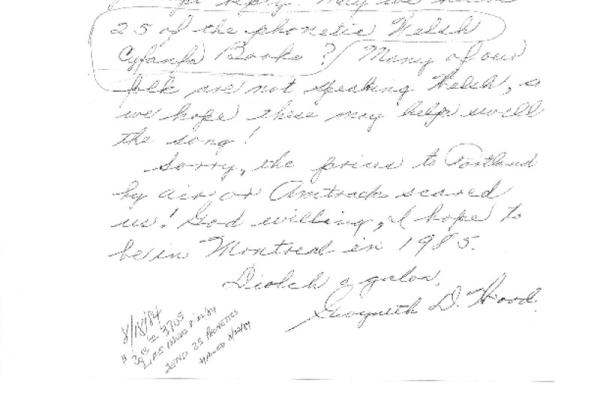 reply. May we
25 of the phonetic Welsh
Cyfanfa Books? / Many of our
folk are not speaking Welsh, so
we hope these may help swell
the song!
Sorry, the prices to Portland
by air or Amtrack scared
us! God willing, I hope to
be in Montreal in 1985.
Diolch o galon,
Gwynneth D. Wood.
8/18/84
SEND 25 PHONETICS